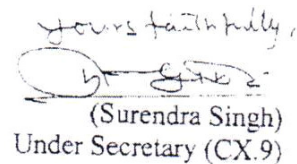 yours faithfully,
(Surendra Singh)
Under Secretary (CX.9)